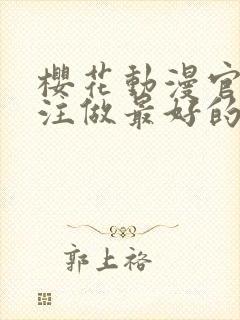 櫻花動漫官
注做最好的
郭上裕